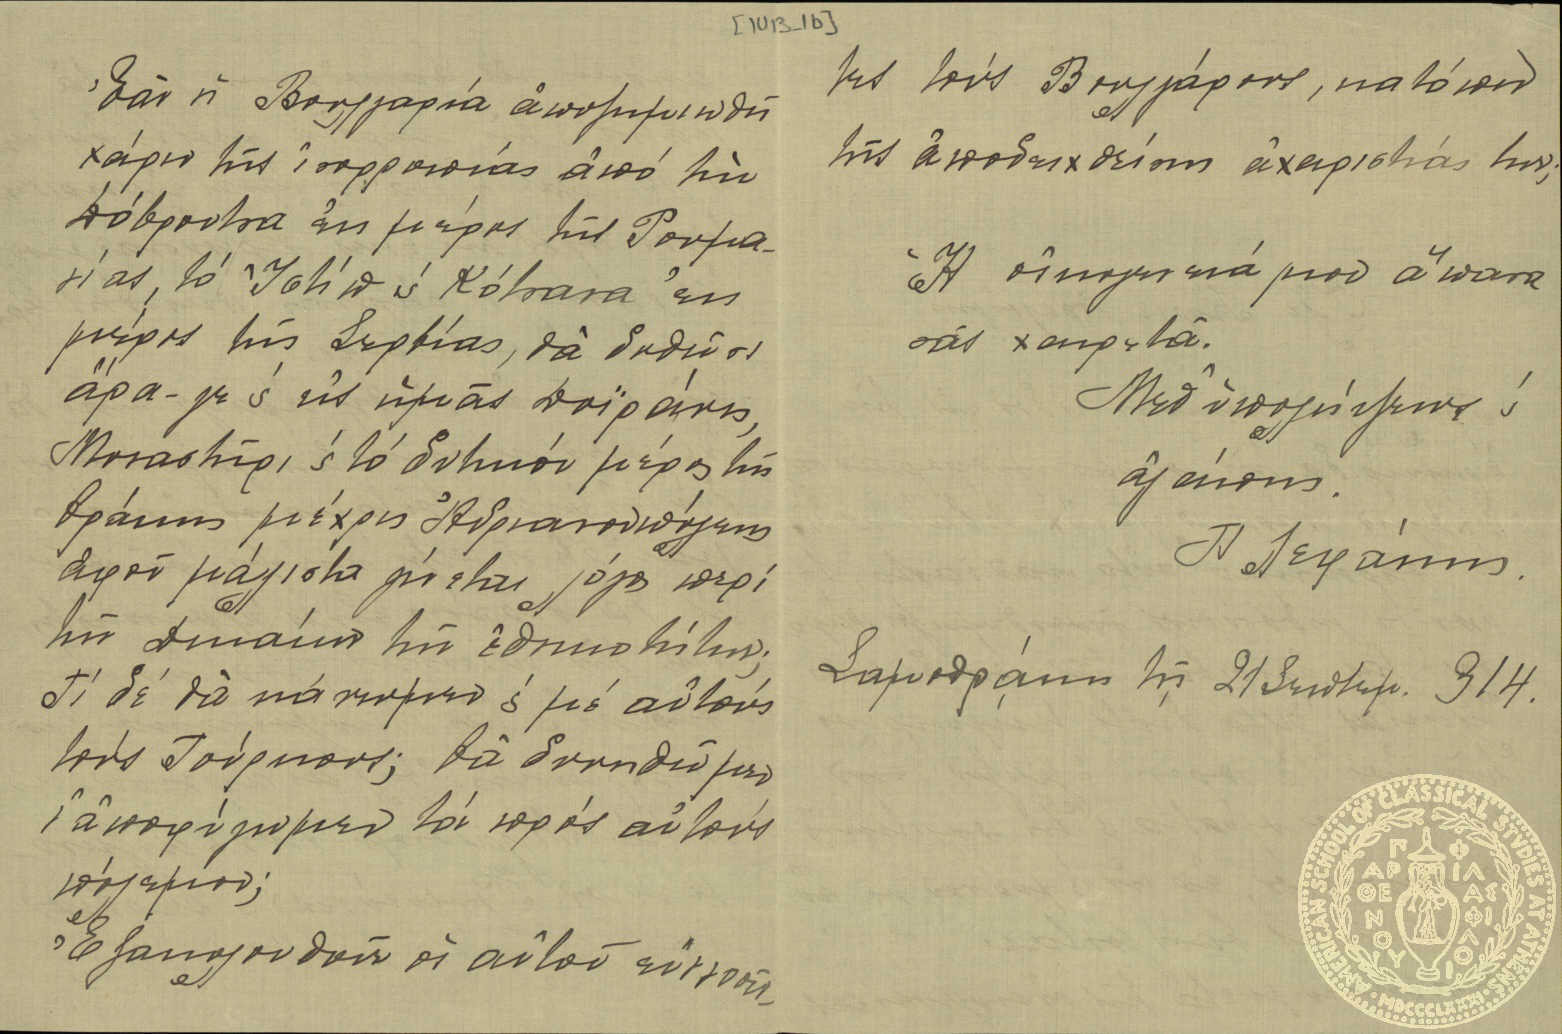 [10B_1b]
Ἐὰν ἡ Βουλγαρία ἀποζημιωθῇ
χάριν τῆς ἰσορροπίας ἀπό τὴν
Δόβρουτσα ἐκ μέρος τῆς Ρουμα-
νίας, τό Ἰστίπ ϛ́ Κότσανα ἐκ
μέρος τῆς Σερβίας, θὰ δοθῶσι
ἆρα-γε ϛ́ εἰς ἡμᾶς Δοϊράνης,
Μοναστῆρι ϛ́ τό δυτικόν μέρος τῆς
Θράκης μέχρις Ἀδριανουπόλεως
ἀφοῦ μάλιστα γίνεται λόγος περί
τῶν Δικαίων τῶν ἐθνικοτήτων;
Τί δέ θὰ κάνωμεν ϛ́ μέ αὐτούς
τούς Τούρκους; θὰ δυνηθῶμεν
ν' ἀποφύγωμεν τόν πρός αὐτούς
πόλεμον;
Ἐξακολουθοῦν οἱ αὐτοῦ εὐνοοῦν-
τες τούς Βουλγάρους, κατόπιν
τῆς ἀποδειχθείσης ἀχαριστίας των;
Ἡ οἰκογενειά μου ἅπασα
σάς χαιρετᾶ.
Μεθ' ὑπολήψεως ϛ́
ἀγάπης.
Σαμοθράκη τῇ 21 Σεπτεμ. 914.